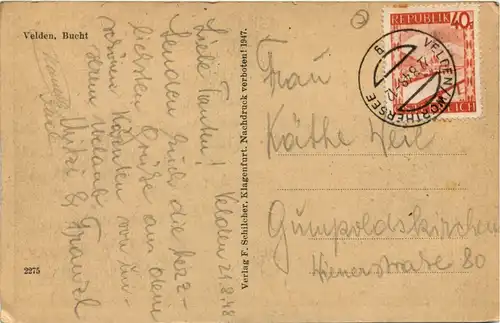 Velden, Bucht
Velden 21.8.48
Liebe Tanten!
Senden Euch die herz-
lichsten Grüße aus dem
schönen Kärnten von un-
serem Urlaub
Mitzi & Franzl
2275
Verlag F. Schilcher, Klagenfurt. Nachdruck verboten! 1947.
REPUBLIK 40
VELDEN (WÖRTHERSEE)
Frau
Käthe Weil
Gumpoldskirchen
Wienerstraße 80